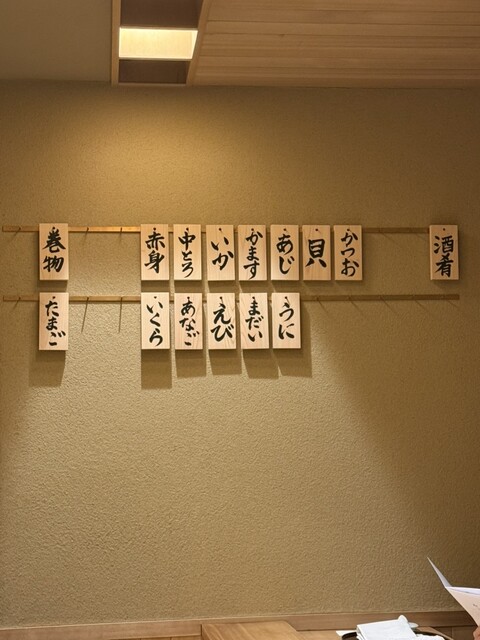 酒肴
かつお
貝
あじ
かます
いか
中とろ
赤身
巻物
うに
まだい
えび
あなご
いくら
たまご